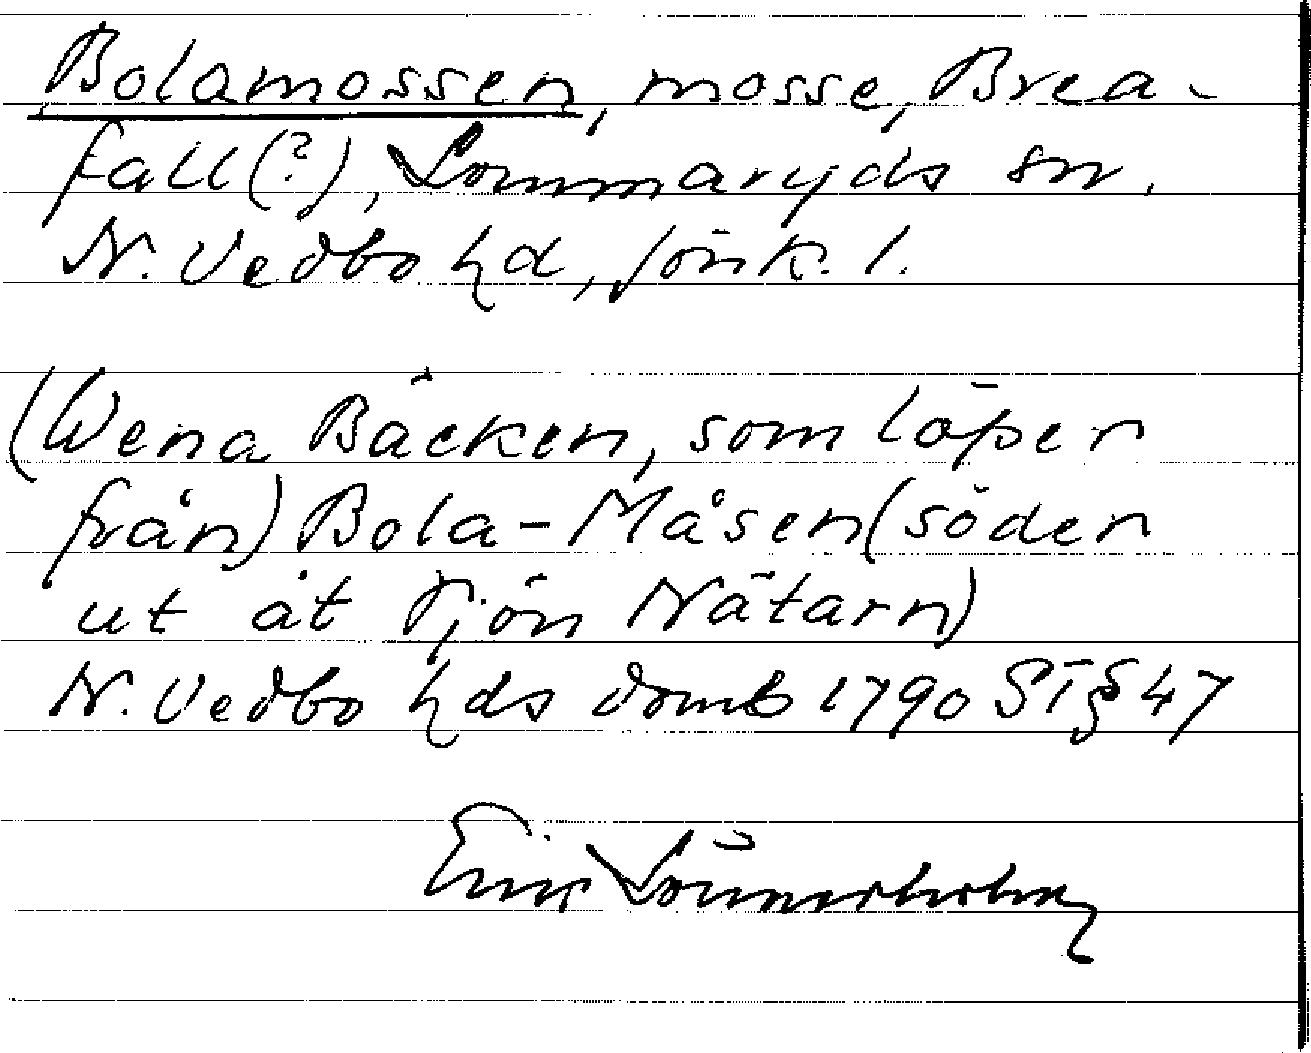 Bolamossen, mosse, Brea-
fall(?), Lommaryds sn.
N. Vedbo hd, Jönk. l.
(Wena Bäcken, som löper
från) Bola-Måsen (söder
ut åt Sjön Nätarn)
N. Vedbo hds domb 1790 ST § 47
Eric Lönnerholm